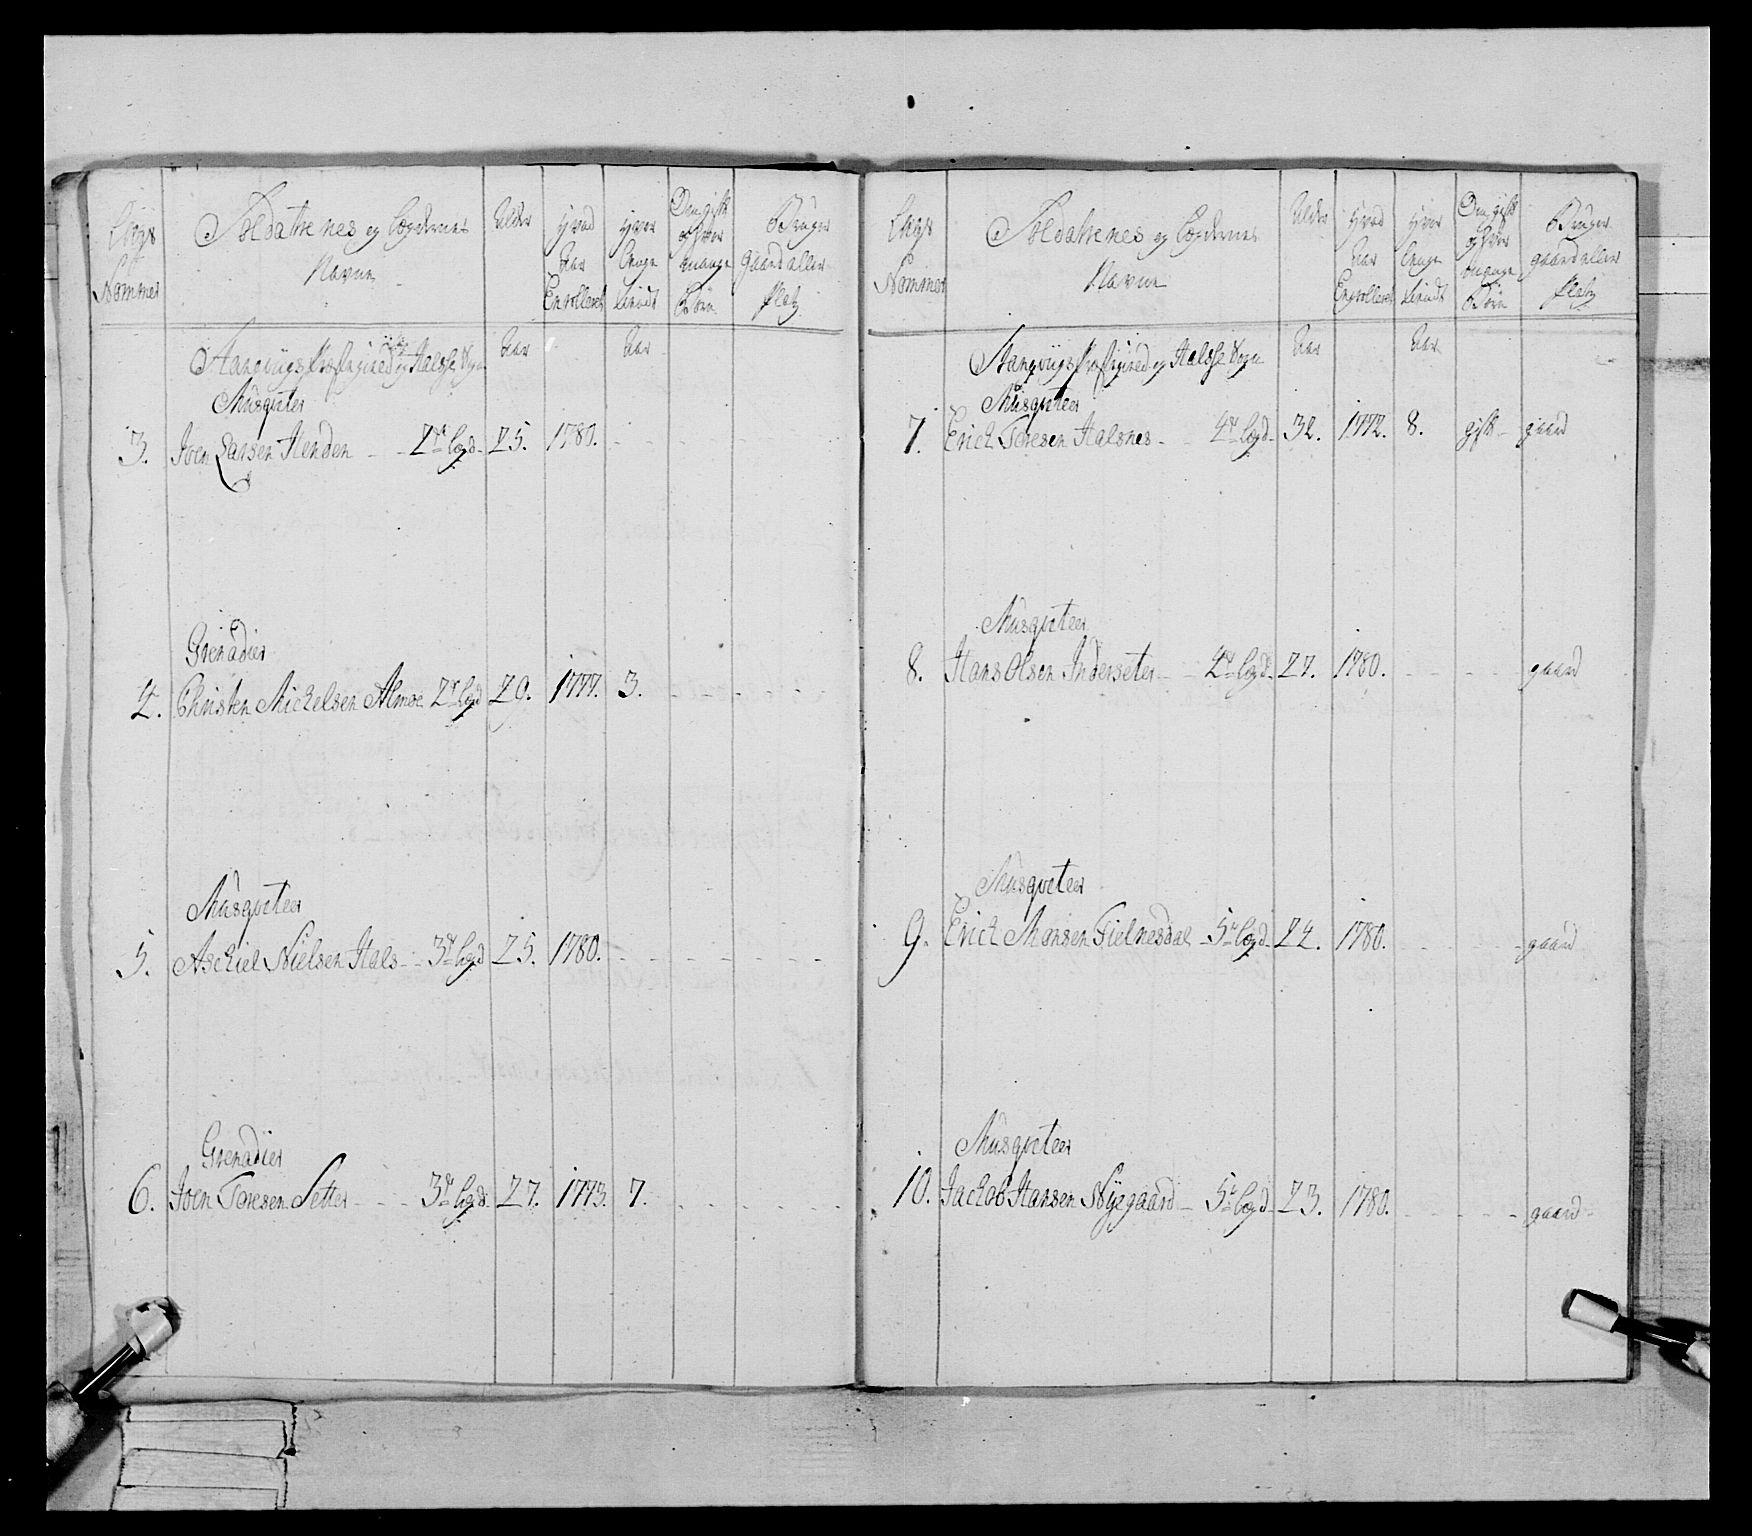 Lægs Nommer
Soldatternes og Lægdernes Navne
Alder
Hvad Aar Enrolleret
Hvor længe tiendt
Om gift og hvor mange Børn
Bruger gaard eller Platz
Stangvigs Præstegield og Halsse Sogn
Aar
Aar
Musqueteer
3. Joen Larsen Henden - - 2de Lægd - 25. 1780. - - - -
Grenadier
4. Christen Mickelsen Almoe 2de Lægd 29. 1777. 3. - - -
Musqueteer
5. Aschiel Nielsen Hals - - 3de Lægd 25. 1780. - - - -
Grenadier
6. Joen Toresen Setter - - - 3de Lægd - 27. 1773. 7. - - -
Lægs Nommer
Soldatternes og Lægdernes Navne
Alder
Hvad Aar Enrolleret
Hvor længe tiendt
Om gift og hvor mange Børn
Bruger gaard eller Platz
Stangvigs Præstegield og Halsse Sogn
Aar
Aar
Musqueteer
7. Erich Toresen Halsnes - - 4de Lægd - 32. 1772. 8. gift - gaard
Musqueteer
8. Hans Olsen Inderseter - - 4de Lægd - 27. 1780. - - - gaard
Musqueteer
9. Erich Monsen Fielnesdal - 5te Lægd - 24. 1780. - - - gaard
Musqueteer
10. Jachob Hansen Nygaard - 5te Lægd - 23. 1780. - - - gaard -